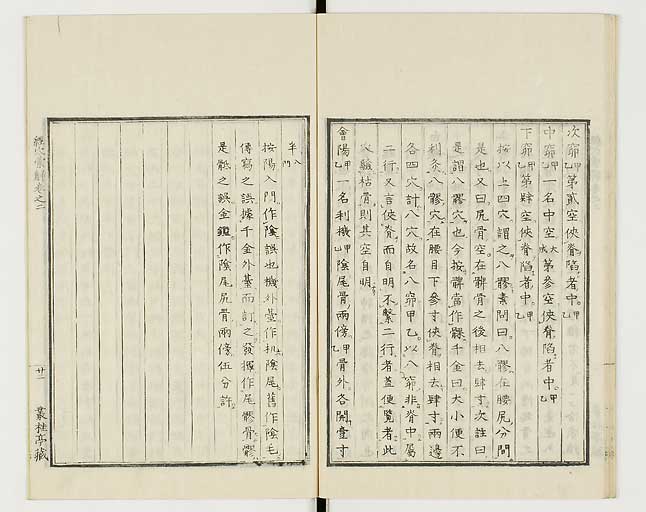 次窌甲乙第貳空俠脊陷者中甲乙
中窌甲乙一名中空大成第參空俠脊陷者中甲乙
下窌甲乙第肆空俠脊陷者中甲乙
按以上四穴謂之八髎素問曰八髎在腰尻分間
是也又曰尻骨空在髀骨之後相去肆寸次註曰
是謂八髎穴也今按髀當作髁千金曰大小便不
利灸八髎穴在腰目下參寸俠脊相去肆寸兩邊
各四穴計八穴故名八窌甲乙以八窌非脊中屬
二行又言俠脊而自明不繫二行者蓋便覽者此
穴驗枯骨則其空自明
會陽甲乙一名利機甲乙陰尾骨兩傍甲乙骨外各開壹寸
半入門
按陽入門作陰誤也機外臺作机陰尾舊作陰毛
傳寫之誤據千金外臺而訂之發揮作尾髎骨髎
是骶之誤金鑑作陰尾尻骨兩傍伍分許
卷之二
廿一
叢桂亭藏